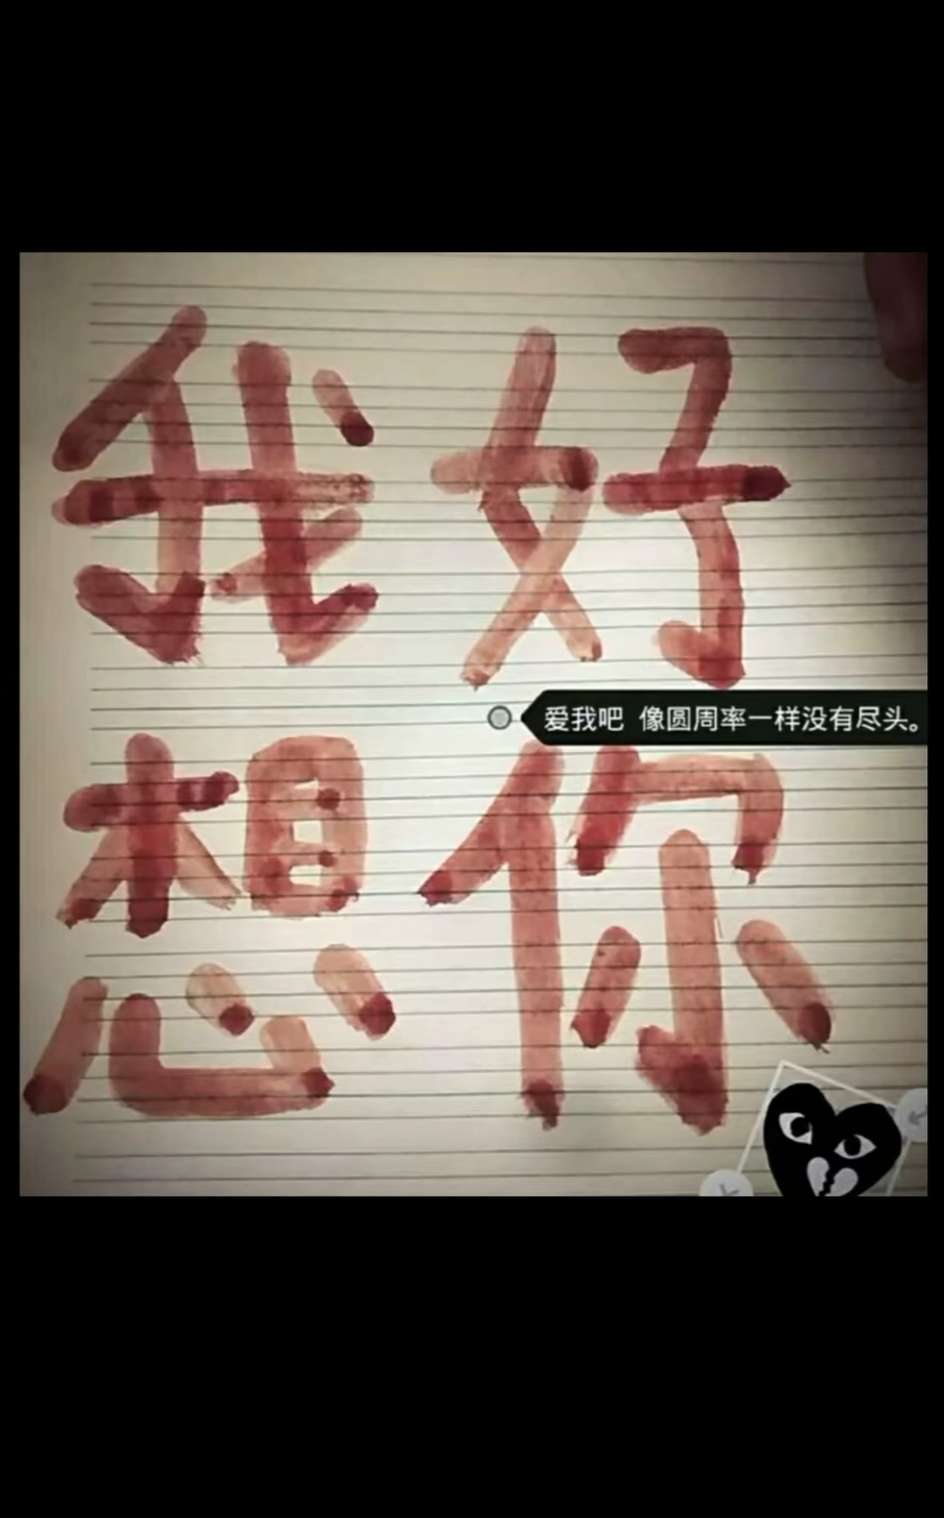 我好
爱我吧 像圆周率一样没有尽头。
想你